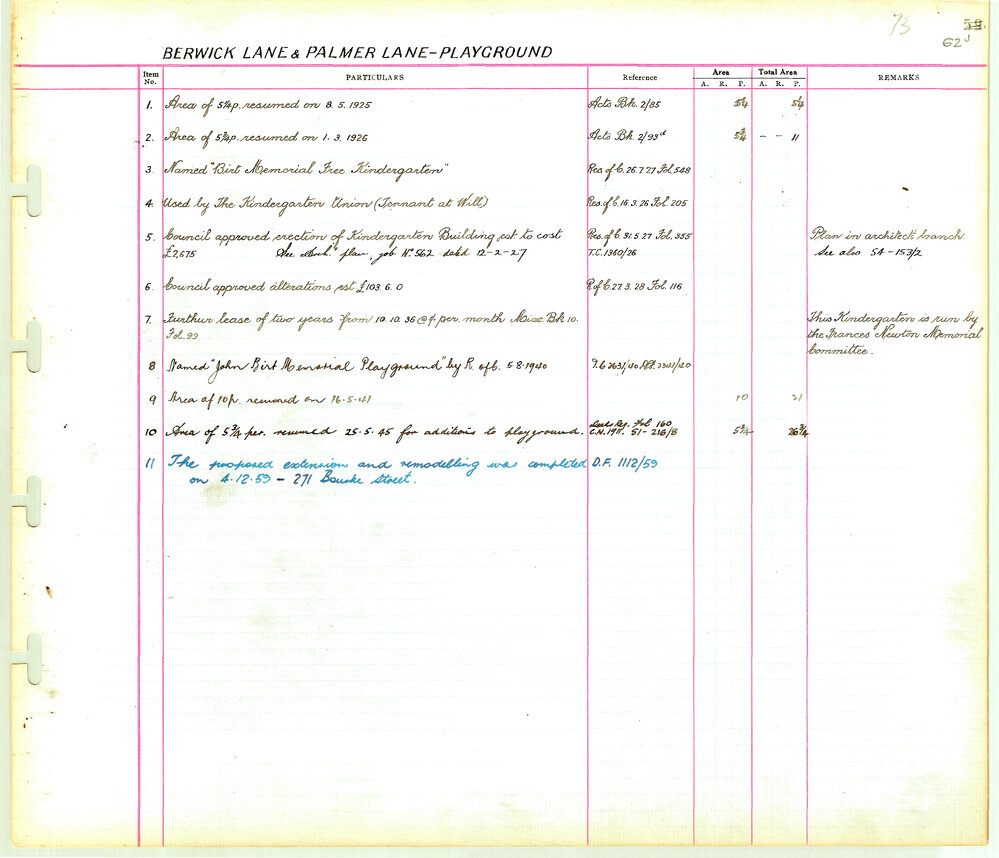 73
59.
62J
BERWICK LANE & PALMER LANE-PLAYGROUND
Item No. PARTICULARS Reference Area Total Area REMARKS
A. R. P. A. R. P.
1. Area of 5¼p. resumed on 8.5.1925 Acts Bk. 2/85 5¼ 5¼
2. Area of 5¾p. resumed on 1.3.1926 Acts Bk 2/93d 5¾ - - 11
3. Named "Birt Memorial Free Kindergarten" Res of C. 26.7.27 Fol. 548
4. Used by The Kindergarten Union (Tennant at Will) Res. of C. 16.3.26 Fol. 205
5. Council approved erection of Kindergarten Building est to cost Res. of C. 31.5.27 Fol. 355 Plan in architects branch.
£2,675 See Arch.s plan, job No. 562 dated 12-2-27 T.C. 1360/26 See also 54-153/2
6. Council approved alterations est £103.6.0 R of C. 27.3.28 Fol. 116
7. Further lease of two years from 10.10.36 @ per. month Misc. Bk 10. This Kindergarten is run by
Fol. 99 the Frances Newton Memorial
Committee.
8 Named "John Birt Memorial Playground" by R. of C. 5.8.1940 T.C 2631/40
9 Area of 10p. resumed on 16.5.41 10 21
10 Area of 5¾ per. resumed 25.5.45 for additions to playground. Fol 160
C.N. 1911. 51-216/8 5¾ 26¾
11 The proposed extension and remodelling was completed D.F. 1112/59
on 4.12.59 - 271 Bourke Street.